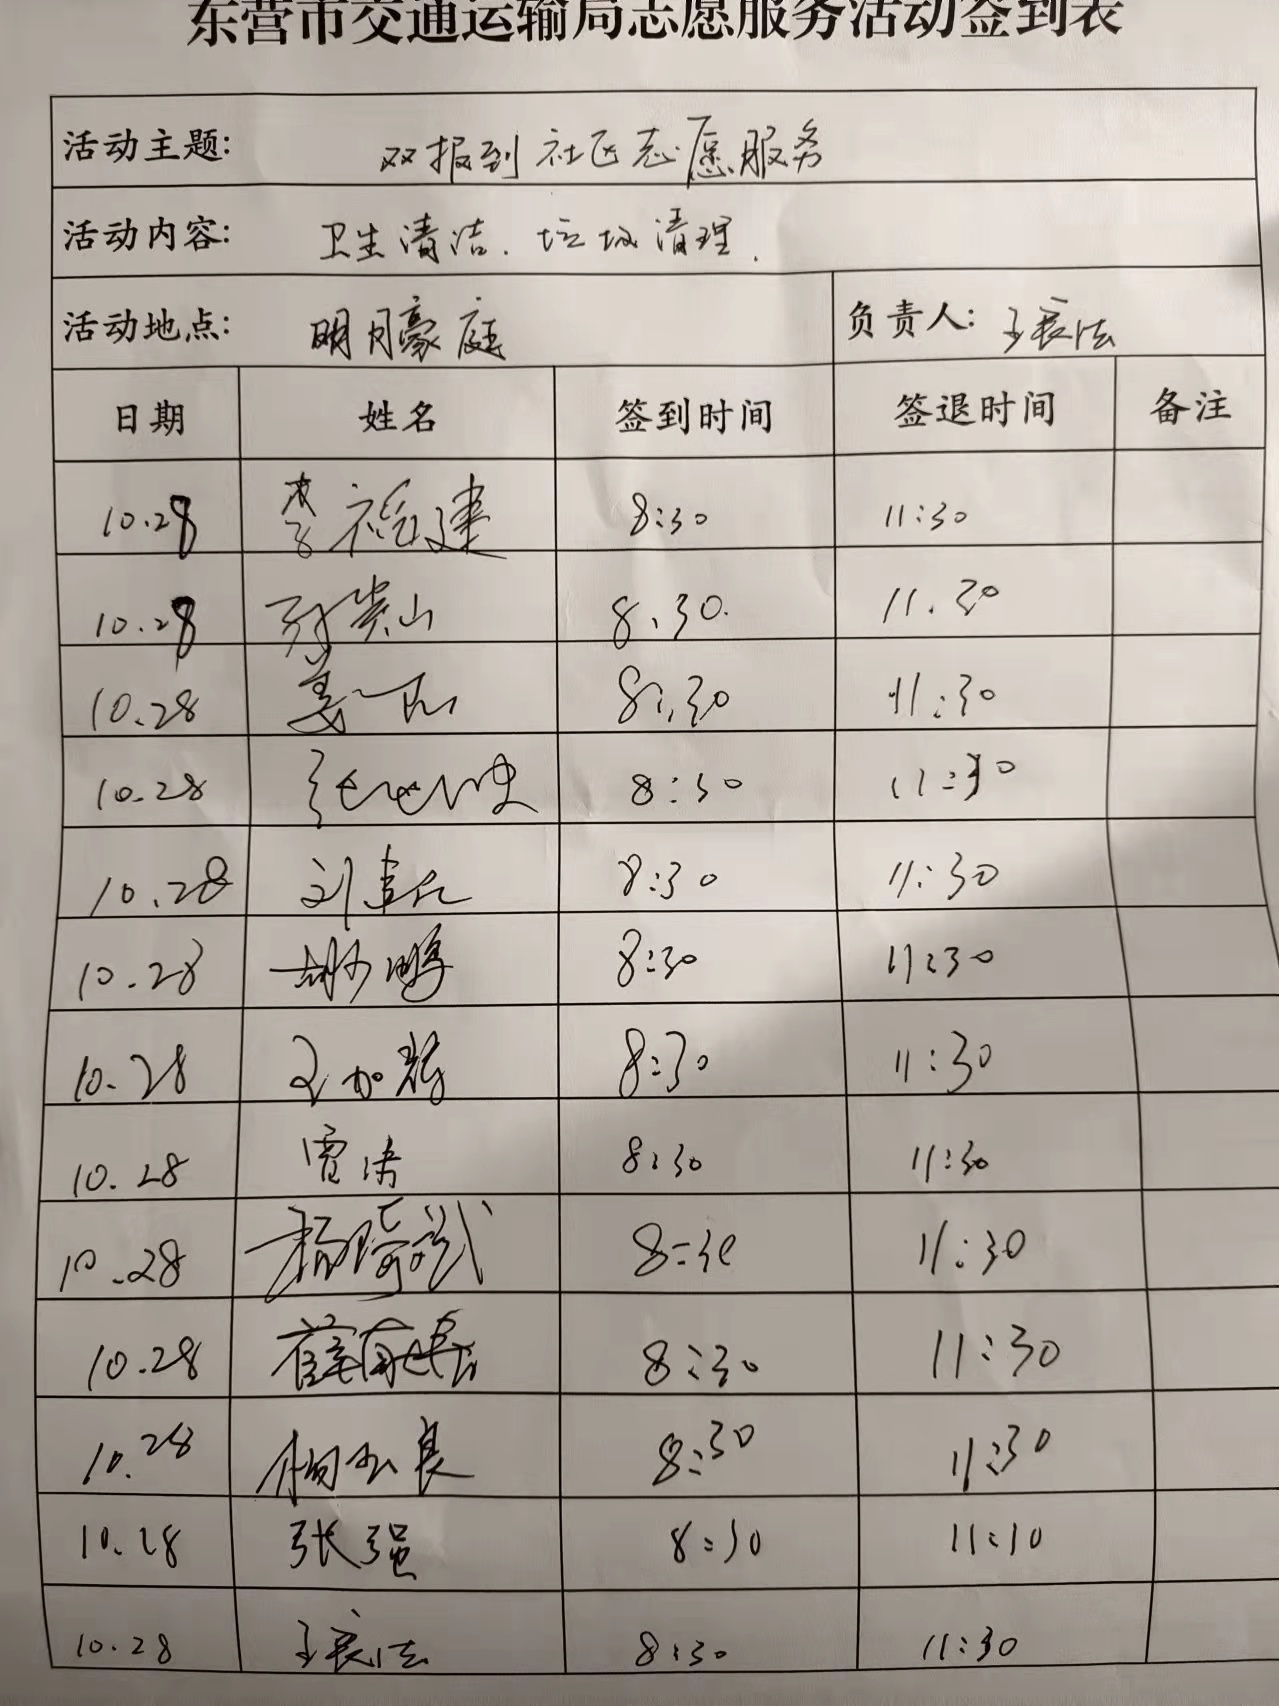 东营市交通运输局志愿服务活动签到表
活动主题: 双报到社区志愿服务
活动内容: 卫生清洁. 垃圾清理.
活动地点: 明月豪庭 负责人: 王良法
日期 姓名 签到时间 签退时间 备注
10.28 李福建 8:30 11:30
10.28 山 8.30. 11.30
10.28 姜 8:30 11:30
10.28 张 8:30 11:30
10.28 刘 8:30 11:30
10.28 胡少鹏 8:30 11:30
10.28 王加辉 8:30 11:30
10.28 贾涛 8:30 11:30
10.28 杨琦武 8:30 11:30
10.28 薛 8:30 11:30
10.28 良 8:30 11:30
10.28 张强 8:30 11:30
10.28 王良法 8:30 11:30